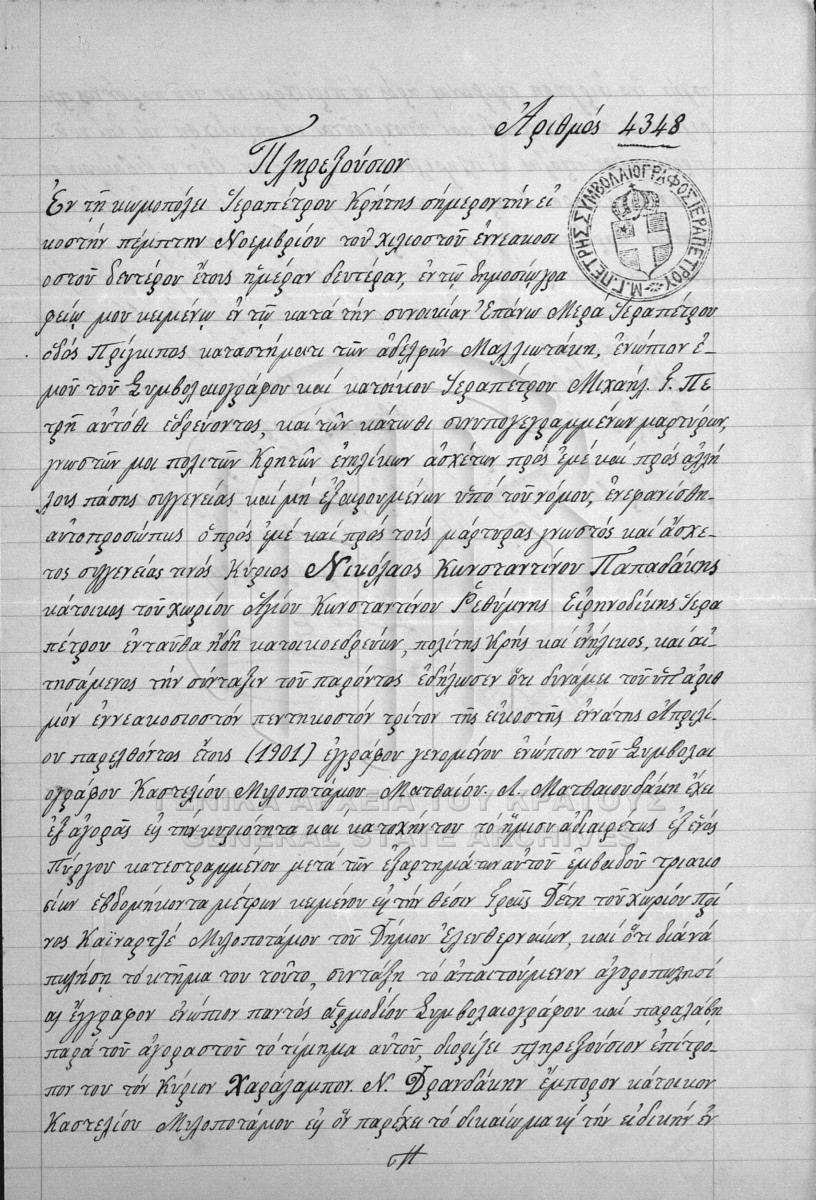 Ἀριθμός 4348
Πληρεξούσιον
Ἐν τῇ κωμοπόλει Ἱεραπέτρου Κρήτης σήμερον τήν εἰ
κοστήν πέμπτην Νοεμβρίου τοῦ χιλιοστοῦ ἐννεακοσι
οστοῦ δευτέρου ἔτους ἡμέραν δευτέραν, ἐν τῷ δημοσίῳ γρα
φείῳ μου κειμένῳ ἐν τῷ κατά τήν συνοικίαν Ἐπάνω Μερα Ἱεραπέτρου
ὁδός Πρίγκιπος καταστήματι τῶν ἀδελφῶν Μαλλιωτάκη, ἐνώπιον ἐ-
μοῦ τοῦ Συμβολαιογράφου καί κατοίκου Ἱεραπέτρου Μιχαήλ Γ. Πε
τρῆ αὐτόθι ἑδρεύοντος, καί τῶν κάτωθι συνυπογεγραμμένων μαρτύρων,
γνωστῶν μοι πολιτῶν Κρητῶν ἐνηλίκων ἀσχέτων πρός ἐμέ καί πρός ἀλλή
λους πάσης συγγενείας καί μή ἐξαιρουμένων ὑπό τοῦ νόμου, ἐνεφανίσθη
αὐτοπροσώπως ὁ πρός ἐμέ καί πρός τούς μάρτυρας γνωστός καί ἄσχε
τος συγγενείας τινός Κύριος Νικόλαος Κωνσταντίνου Παπαδάκης
κάτοικος τοῦ χωρίου Ἁγίου Κωνσταντίνου Ρεθύμνης Εἰρηνοδίκης Ἱερα
πέτρου ἐνταῦθα ἤδη κατοικοεδρεύων, πολίτης Κρής καί ἐνήλικος, καί αἰ
τησάμενος τήν σύνταξιν τοῦ παρόντος ἐδήλωσεν ὅτι δυνάμει τοῦ ὑπ' ἀριθ
μόν ἐννεακοσιοστόν πεντηκοστόν τρίτον τῆς εἰκοστῆς ἐννάτης Ἀπριλί
ου παρελθόντος ἔτους (1901) ἐγγράφου γενομένου ἐνώπιον τοῦ Συμβολαι
ογράφου Καστελίου Μυλοποτάμου Ματθαίου. Λ. Ματθαιουδάκη ἔχει
ἐξ ἀγορᾶς εἰς τήν κυριότητα καί κατοχήν του τό ἥμισυ ἀδιαιρέτως ἐξ ἑνός
Πύργου κατεστραμμένου μετά τῶν ἐξαρτημάτων αὐτοῦ ἐμβαδοῦ τριακο
σίων ἑβδομήκοντα μέτρων κειμένου εἰς τήν θέσιν Δέτη τοῦ χωρίου Πρί
νος Καϊναρτζέ Μυλοποτάμου τοῦ Δήμου Ἐλευθερναίων, καί ὅτι διά νά
πωλήσῃ τό κτῆμα του τοῦτο, συντάξῃ τό ἀπαιτούμενον ἀγοροπωλησί
ας ἔγγραφον ἐνώπιον παντός ἁρμοδίου Συμβολαιογράφου καί παραλάβῃ
παρά τοῦ ἀγοραστοῦ τό τίμημα αὐτοῦ, διορίζει πληρεξούσιον ἐπίτρο-
πον του τόν Κύριον Χαράλαμπον. Ν. Δρανδάκην ἔμπορον κάτοικον
Καστελίου Μυλοποτάμου εἰς ὅν παρέχει τό δικαίωμα καί τήν εἰδικήν ἐν
Μ.Γ. ΠΕΤΡΗΣ ΣΥΜΒΟΛΑΙΟΓΡΑΦΟΣ ΙΕΡΑΠΕΤΡΟΥ
ΓΕΝΙΚΑ ΑΡΧΕΙΑ ΤΟΥ ΚΡΑΤΟΥΣ
GENERAL STATE ARCHIVES